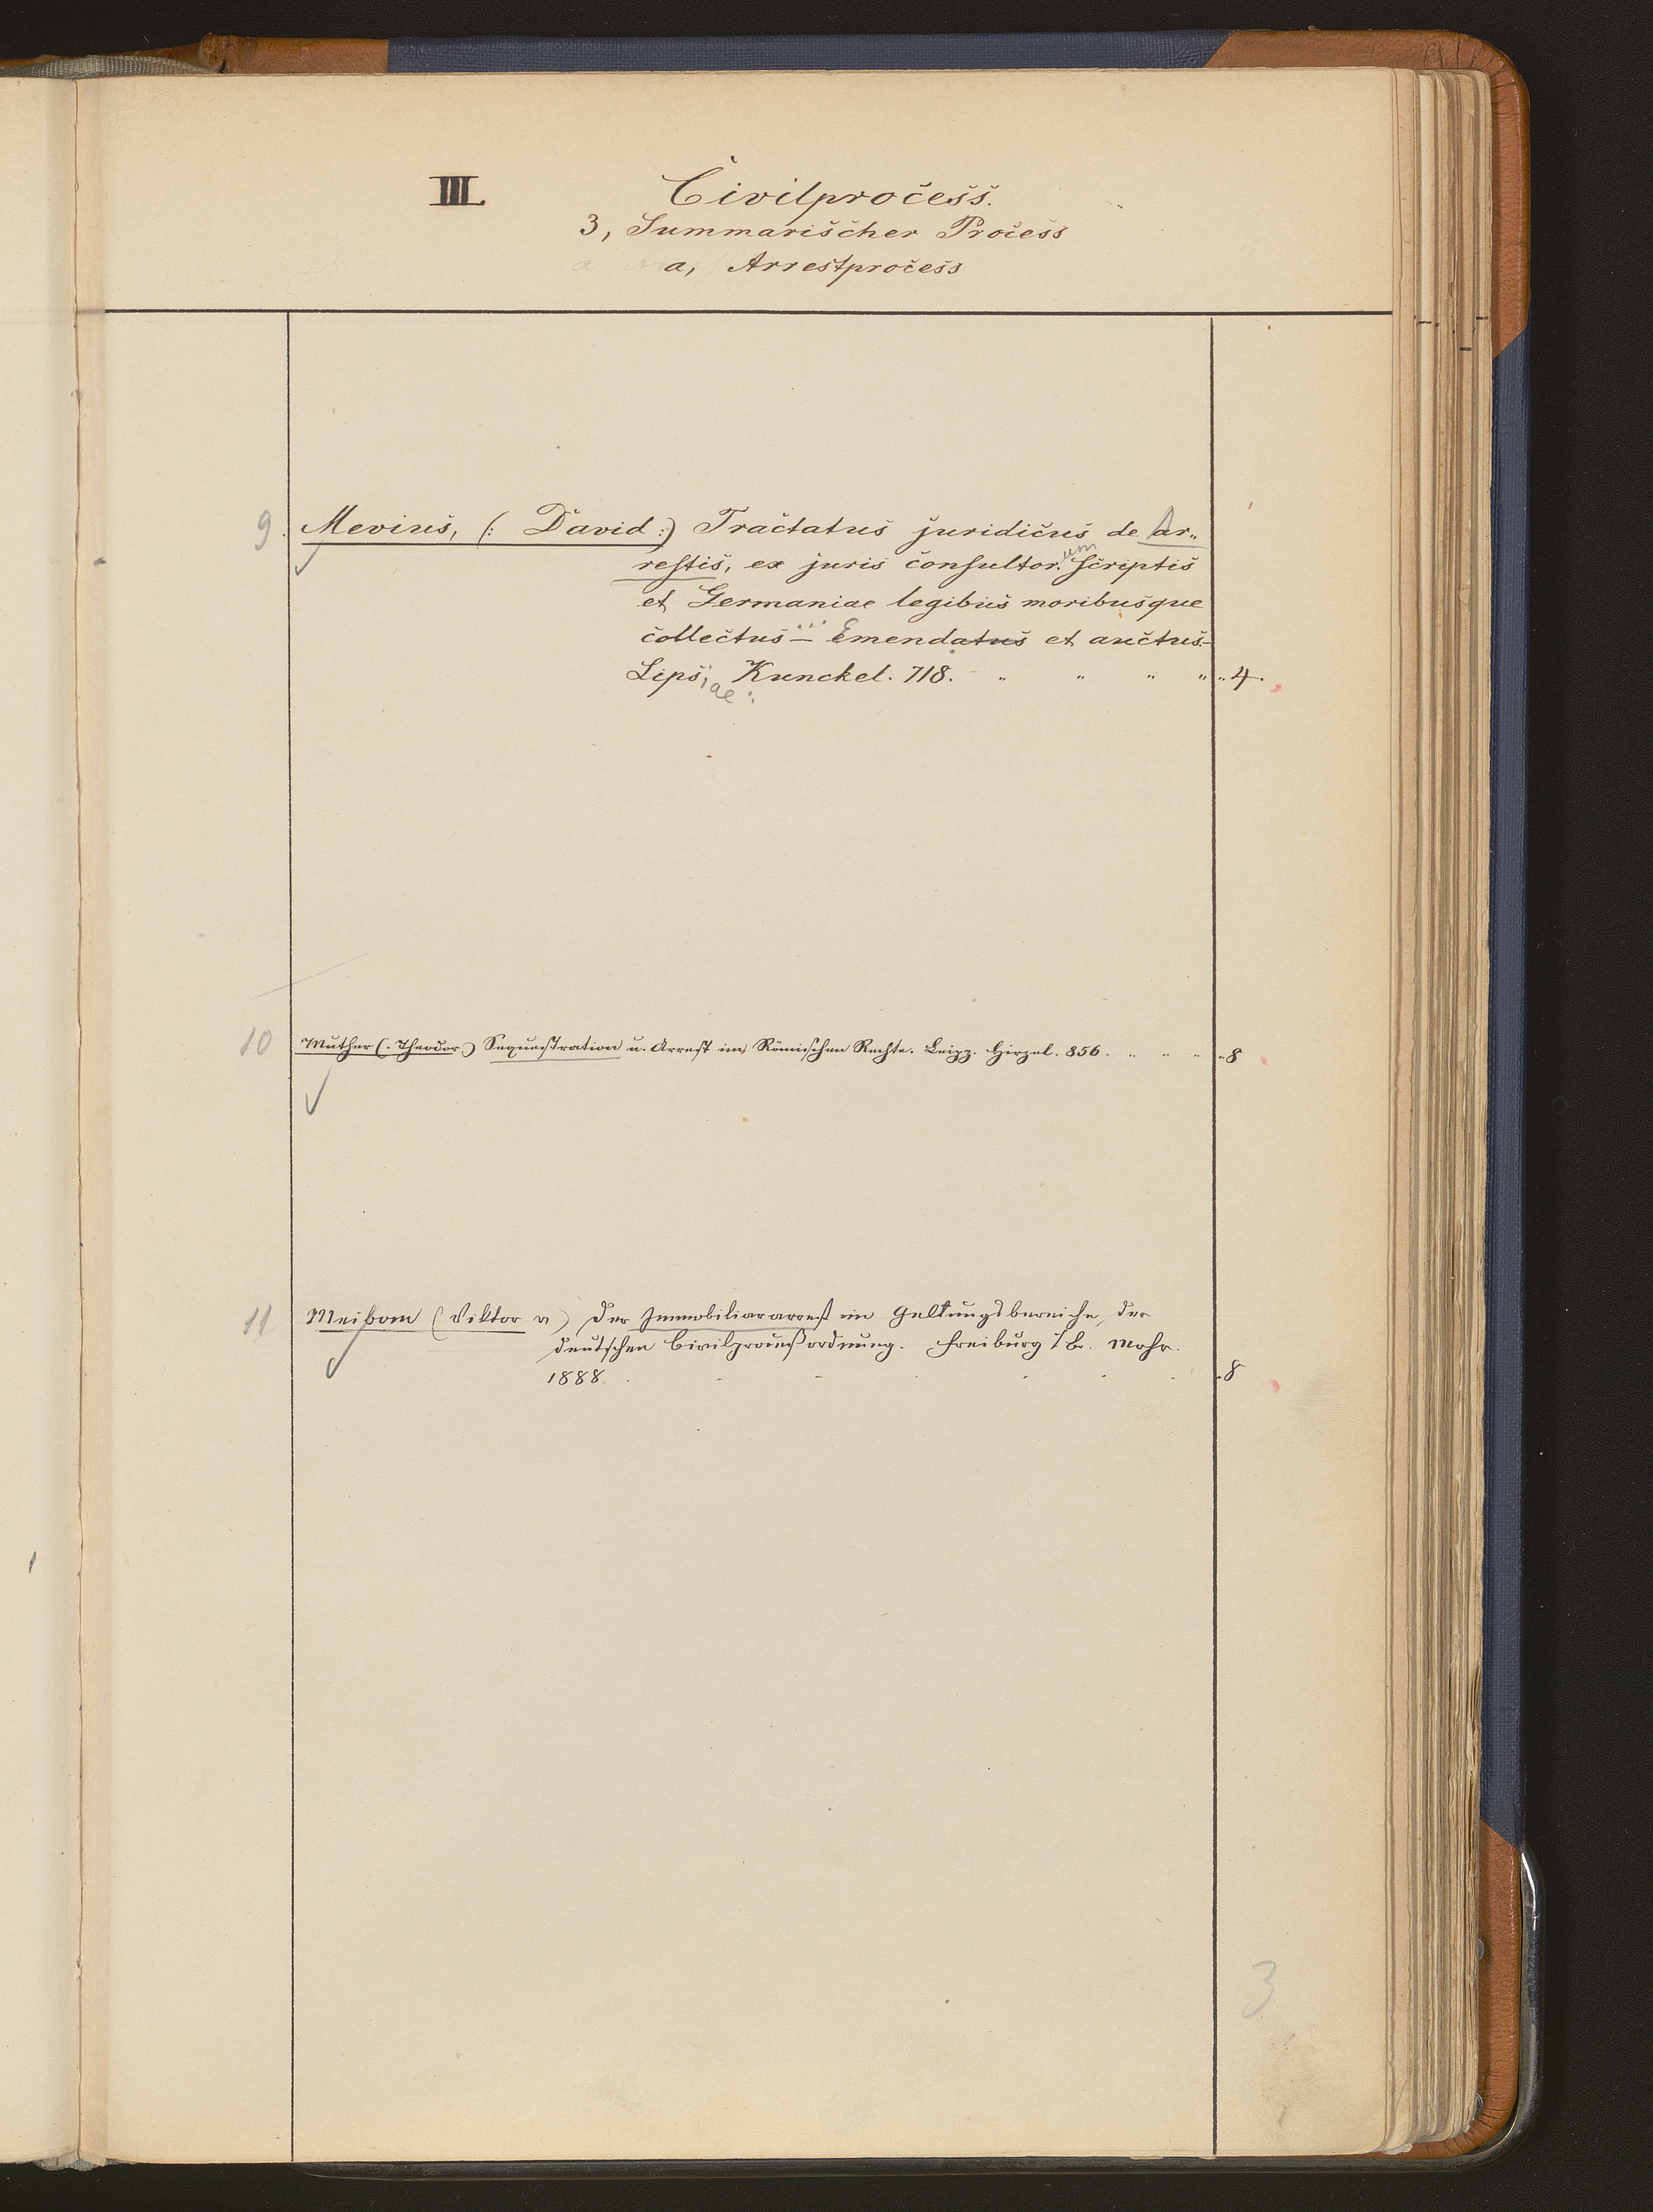 III. Civilprocess.
3, Summarischer Process
a, Arrestprocess
9. Mevius, (: David :) Tractatus juridicus de Ar„
restis, ex juris consultor.um scriptis
et Germaniae legibus moribusque
collectus ... Emendatus et auctus.-
Lipsiae: Kunckel. 718. „ „ „ „ „ 4.
10 Muther (: Theodor :) Sequestration u. Arrest im Römischen Rechte. Leipz. Hirzel. 856. „ „ „ „ 8
11 Meibom (Viktor v) Der Immobiliararrest im Geltungsbereiche der
deutschen Civilproceßordnung. Freiburg i/B. Mohr.
1888. . . . . . . . 8
3